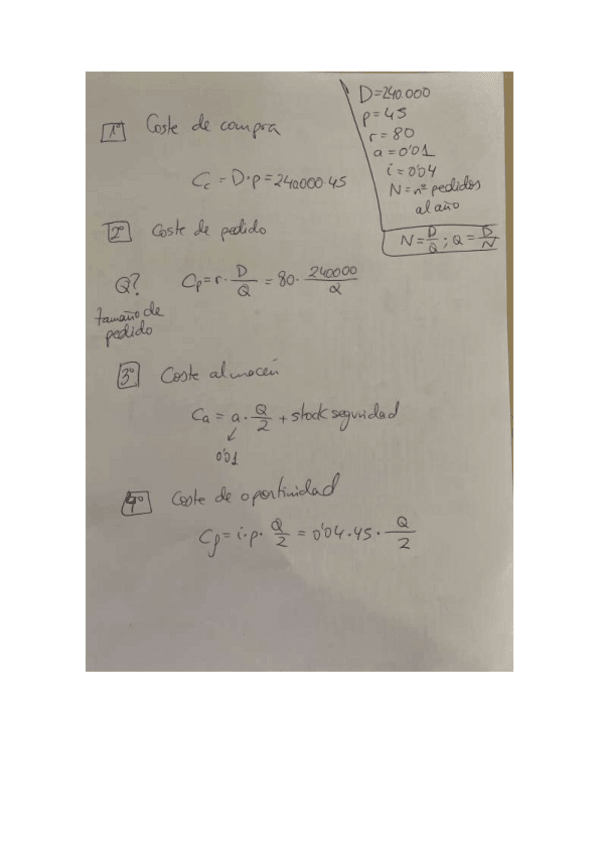 D=240.000
p=45
r=80
a=0'01
i=0'04
N=nº pedidos
al año
N=D/Q ; Q=D/N
1º Coste de compra
Cc = D·p = 240000·45
2º Coste de pedido
Q? Cp=r·D/Q = 80·240000/Q
tamaño de
pedido
3º Coste almacén
Ca = a·Q/2 + stock seguridad
↓
0'01
4º Coste de oportunidad
Cp=i·p·Q/2 = 0'04·45·Q/2